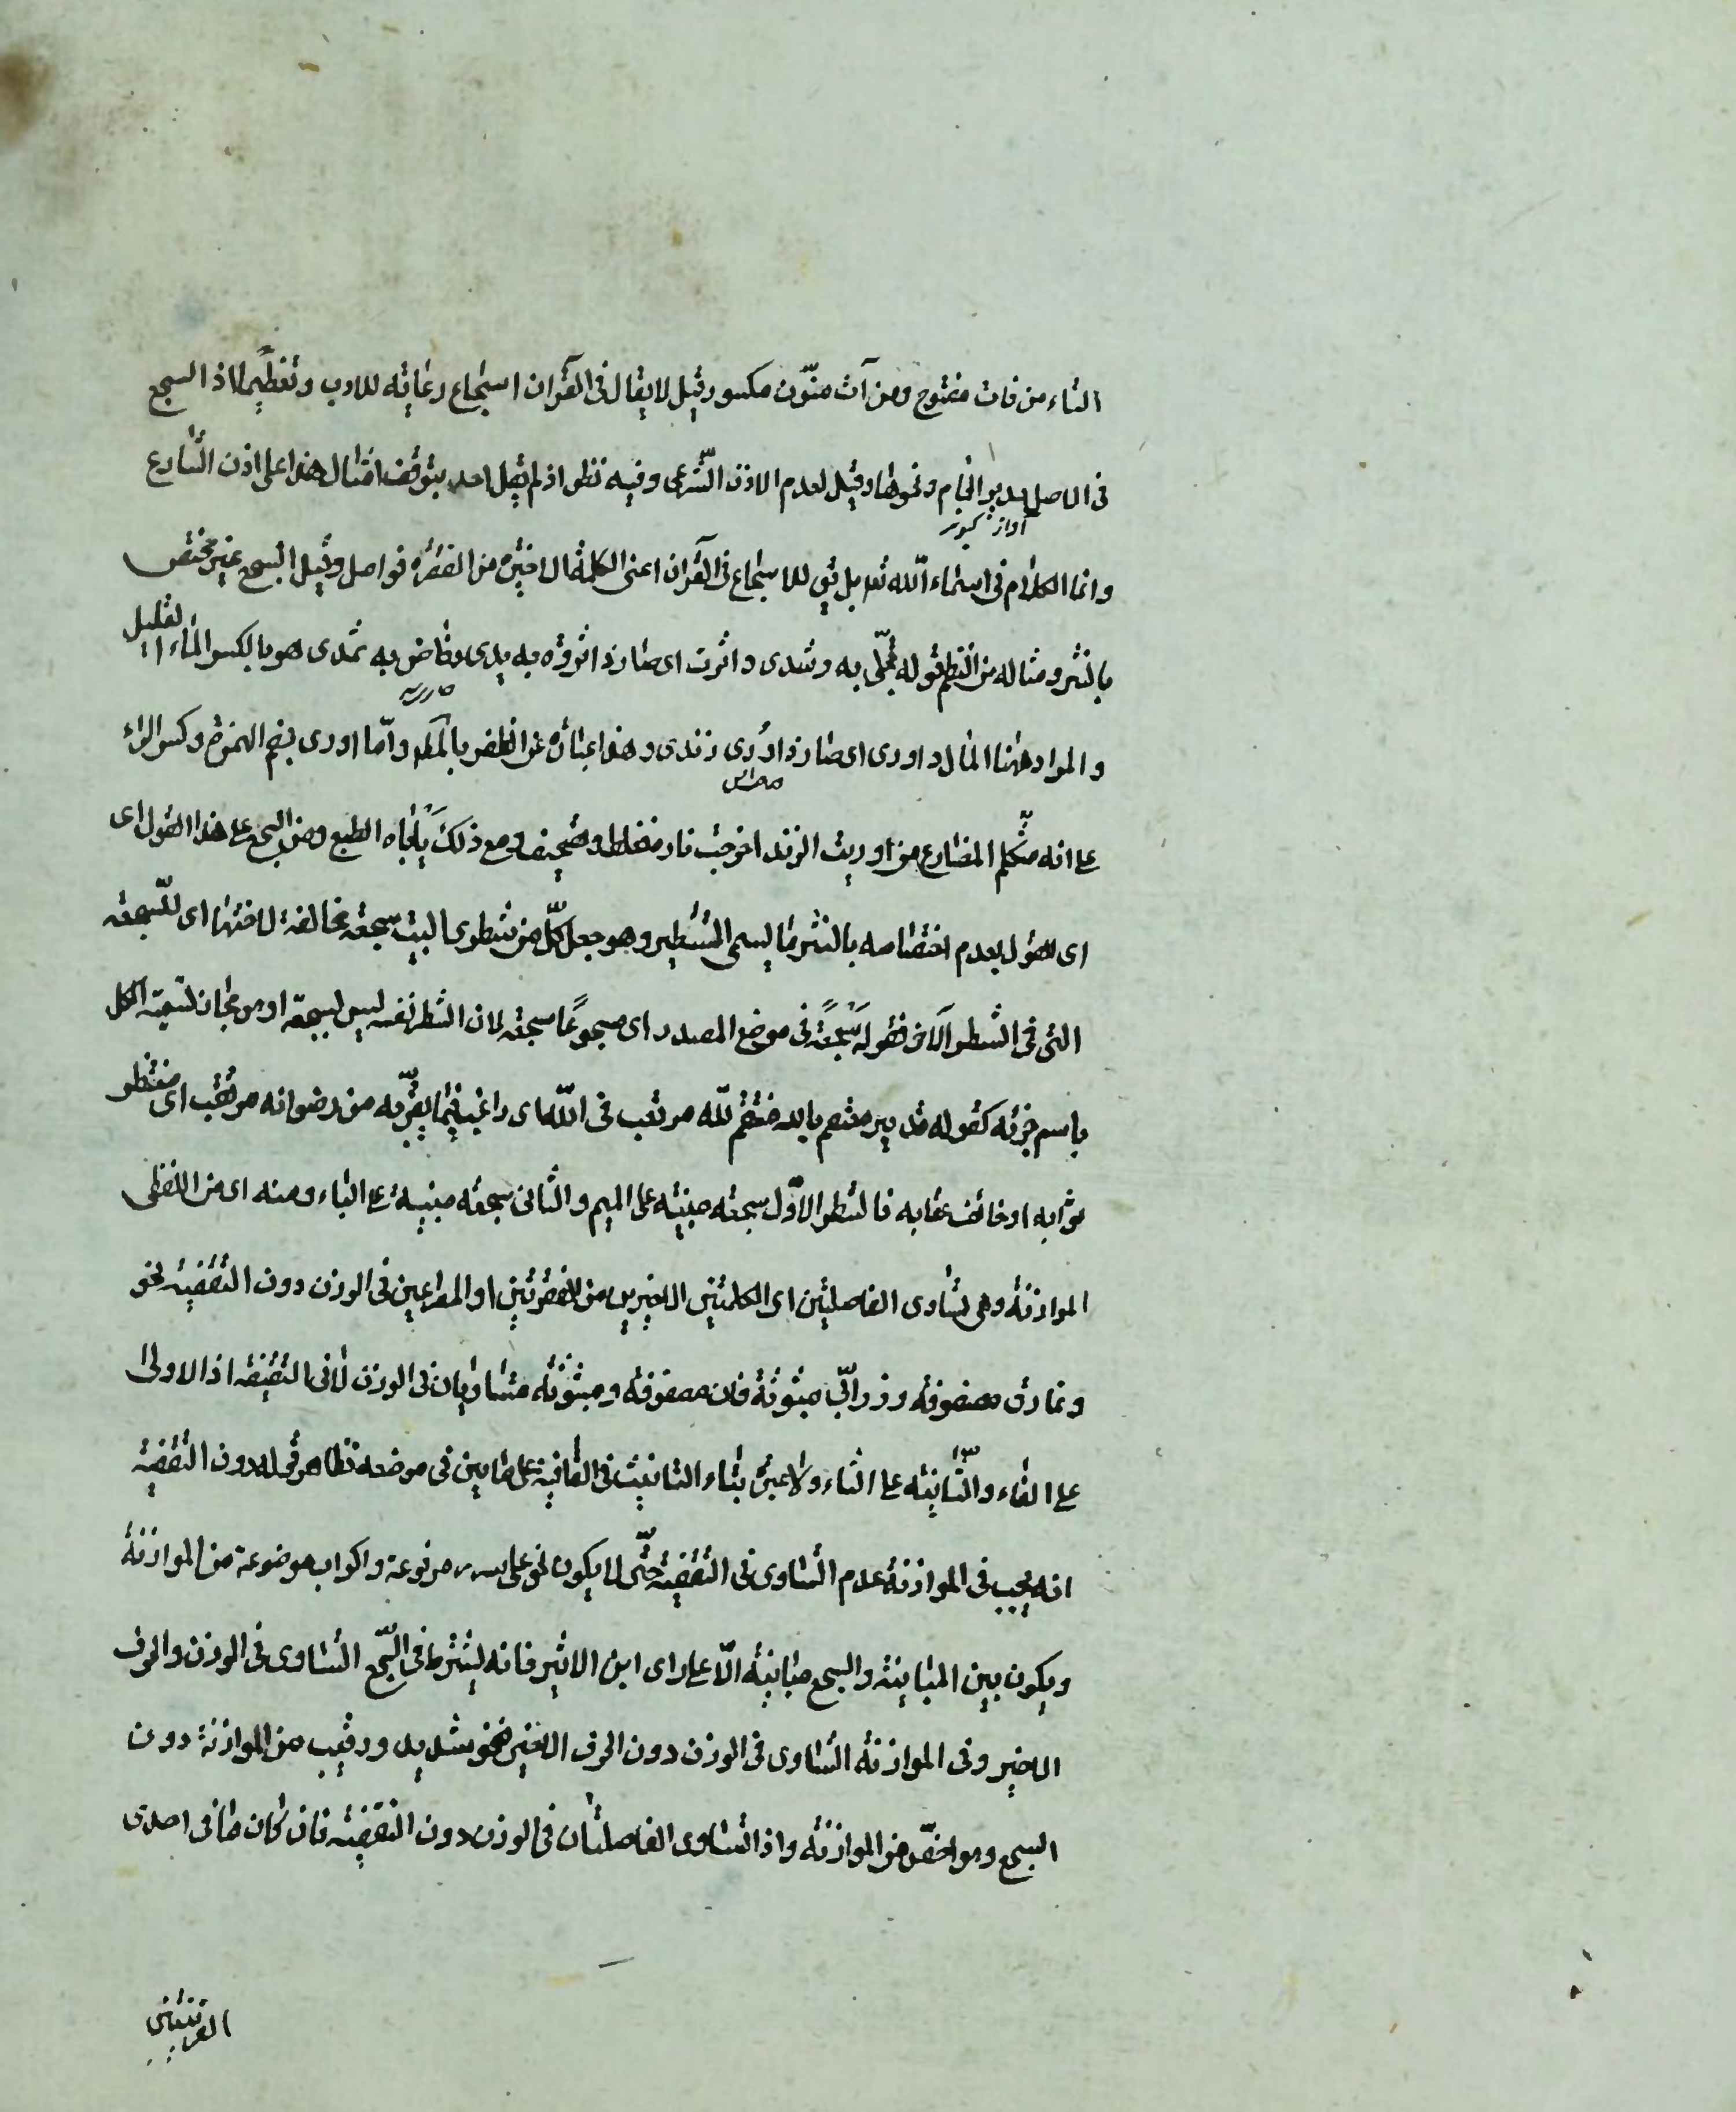 التاء من فات مفتوح ومن آت منوّن مكسور قيل لا يقال فى القرآن اسجاع رعاية للادب وتعظيما اذ السجع
فى الاصل هدير الحمام ونحوها وقيل لعدم الاذن الشرعى وفيه نظر اذ لم يقل احد بتوقف امثال هذا على اذن الشارع
آواز كبوتر
وانما الكلام فى اسماء الله تعه بل يق للاسجاع فى القرآن اعنى الكلمة الاخيرة من الفقرة فواصل وقيل السجع غير مختص
بالنثر ومثاله من النظم قوله تجلّى به رشدى واثرت اى صارذا ثروة به يدى وفاض به ثمدى هو بالكسر الماء القليل
والمراد ههنا المال واورى اى صار ذا ورى زندى وهذا عبارة عن الظفر بالمط واّما اورى بضم الهمزة وكسر الراء
على انه متكلم المضارع من اوريت الزند اخرجت ناره فغلط وتصحيف ومع ذلك يأباه الطبع ومن السجع على هذا القول اى
اى القول بعدم اختصاصه بالنثر ما يسمى التشطير وهو جعل كلّ من شطرى البيت سجعة مخالفة لاختها اى للسّجعة
التى فى الشطر الآخر فقوله سَجْعَةً فى موضع المصدر اى مسجوعًا سجعة لان الشطر نفسه ليس بسجعة او هو مجاز تسمية الكل
باسم جزئه كقوله تدبير معتصم بالله منتقم لله مرتغب فى الله اى راغب فيما يقرّبه من رضوانه مرتقب اى منتظر
ثوابه او خائف عقابه فالشطر الاوّل سجعة مبنيّة على الميم والثانى سجعة مبنية على الباء ومنه اى من اللفظى
الموازنة وهى تساوى الفاصلتين اى الكلمتين الاخيرين من الفقرتين او المصراعين فى الوزن دون التقفية نحو
ونمارق مصفوفة وزرابّى مبثوثة فان مصفوفة ومبثوثة متساويان فى الوزن لا فى التقفية اذ الاولى
على الفاء والثّانية على الثاء ولا عبرة بتاء التانيث فى القافية على ما بين فى موضعه وظاهر قوله دون التقفية
انه يجب فى الموازنة عدم التساوى فى التقفية حتّى لا يكون نحو على سرر مرفوعة واكواب موضوعة من الموازنة
ويكون بين المباينة والسجع مباينة الّا على راى ابن الاثير فانه يشترط فى السّجع التساوى فى الوزن والحرف
الاخير وفى الموازنة التساوى فى الوزن دون الحرف الاخير فنحو شديد ورقيب من الموازنة دون
السجع وهو اخصّ من الموازنة واذا تساوى الفاصلتان فى الوزن دون التقفية فان كان ما فى احدى
القرينتين